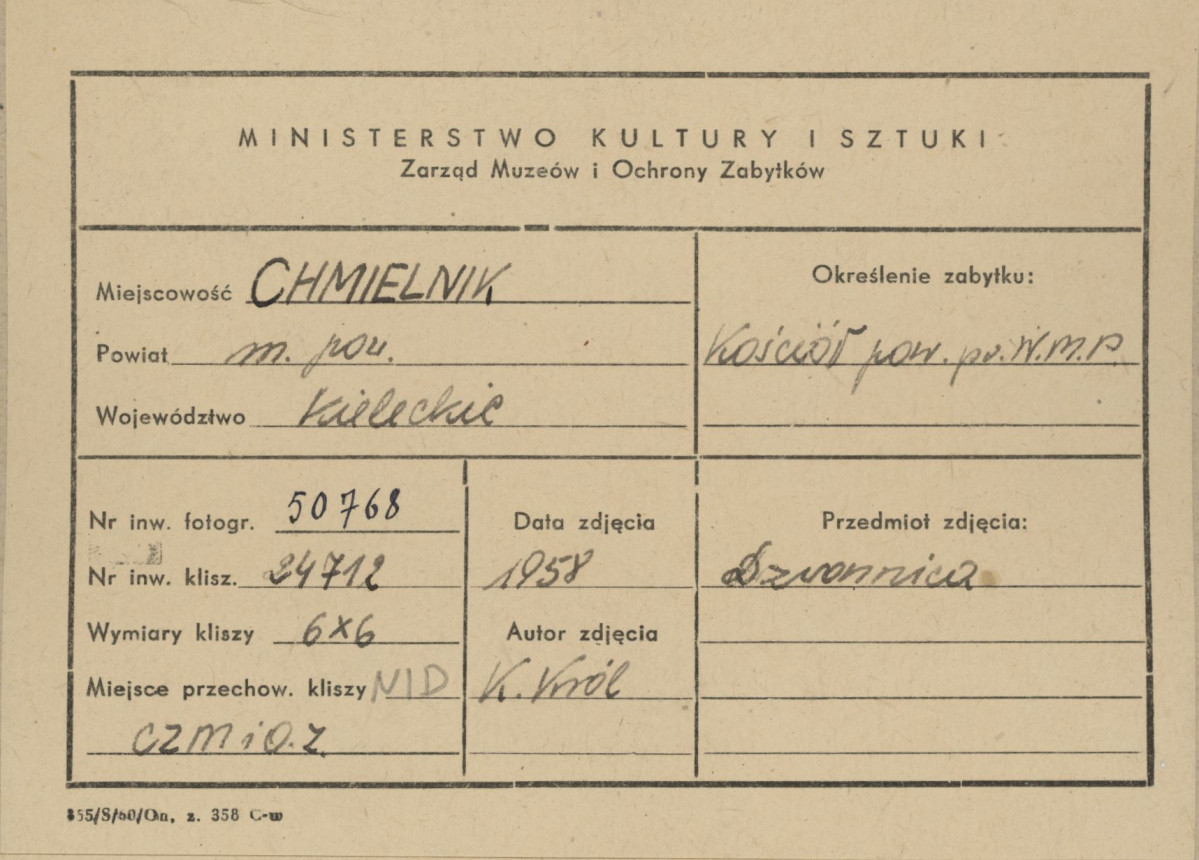 MINISTERSTWO KULTURY I SZTUKI
Zarząd Muzeów i Ochrony Zabytków
Miejscowość CHMIELNIK
Powiat m. pow.
Województwo Kieleckie
Określenie zabytku:
Kościół par. pw. N.M.P.
Nr inw. fotogr. 50768
Nr inw. klisz. 24712
Wymiary kliszy 6x6
Miejsce przechow. kliszy NID
CZMiO.Z.
Data zdjęcia
1958
Autor zdjęcia
K. Król
Przedmiot zdjęcia:
Dzwonnica
z. 358 C-w